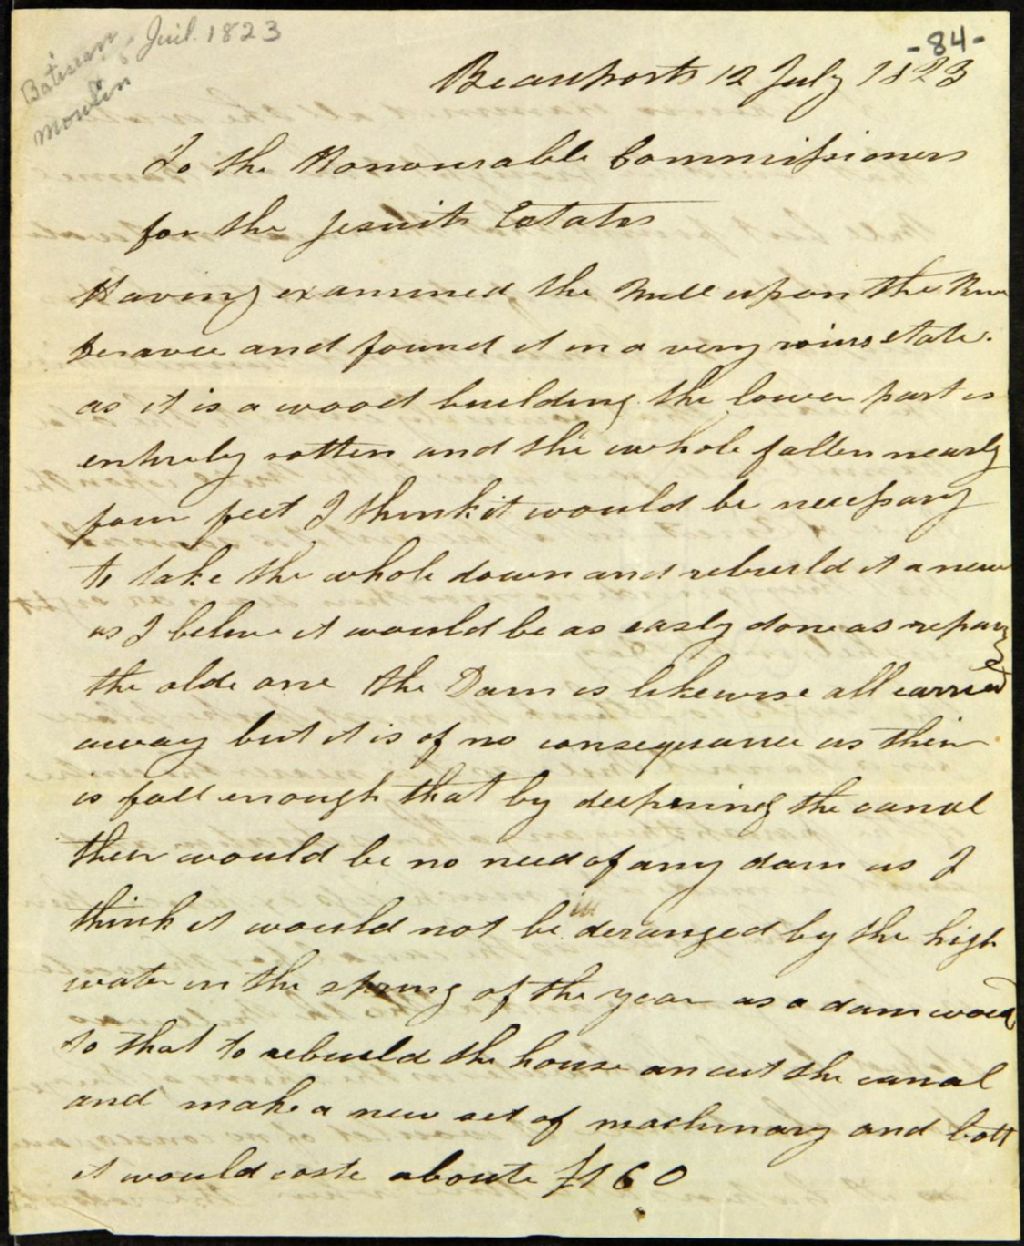 Batiscan 6 Juil. 1823
Moulin
-84-
Beauport 12 July 1823
To the Honourable Commissioners
for the Jesuits Estates
Having examined the Mill upon the
and found it in a very state.
as it is a wood building the lower part is
entirely rotten and the whole fallen nearly
four feet I think it would be necessary
to take the whole down and rebuild it a new
as I beleve it would be as easly done as
the olde one the Dam is likewise all carried
away but it is of no consequance as their
is fall enough that by deepening the canal
their would be no need of any dam as I
think it would not be deranged by the high
water in the spring of the year as a dam
to that to rebuild the house an cut the canal
and make a new set of machinary and bolt
it would coste aboute £160